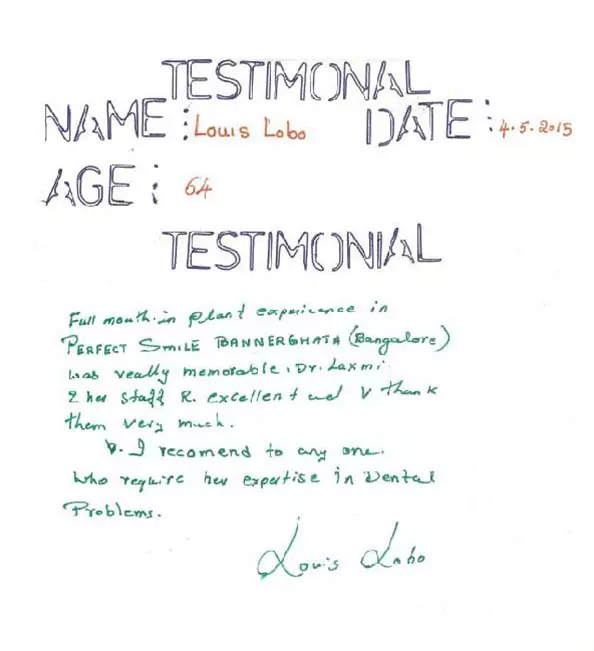 TESTIMONAL
NAME : Louis Lobo DATE : 4.5.2015
AGE : 64
TESTIMONIAL
Full mouth in plant experience in
PERFECT SMILE BANNERGHATA (Bangalore)
was really memorable, Dr. Laxmi
& her staff R. excellent and V thank
them very much.
I recomend to any one.
who require her expertise in Dental
Problems.
Louis Lobo